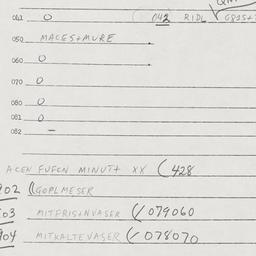 041 O 042 RIDL
050 MACES+MURE
060 O
070 O
080 O
081 O
082 —
ACEN FUFCN MINUT+ XX (428
902 GOPLMESER
03 MITFRIS+NVASER (/079060
904 MITKALTEVASER (/078070